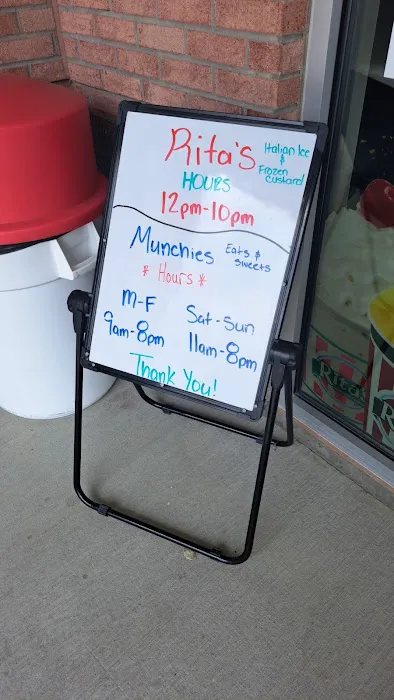 Rita's
Italian Ice
&
Frozen
Custard
HOURS
12pm-10pm
Munchies
Eats &
Sweets
* Hours *
M-F
9am-8pm
Sat-Sun
11am-8pm
Thank You!
Rita's
R